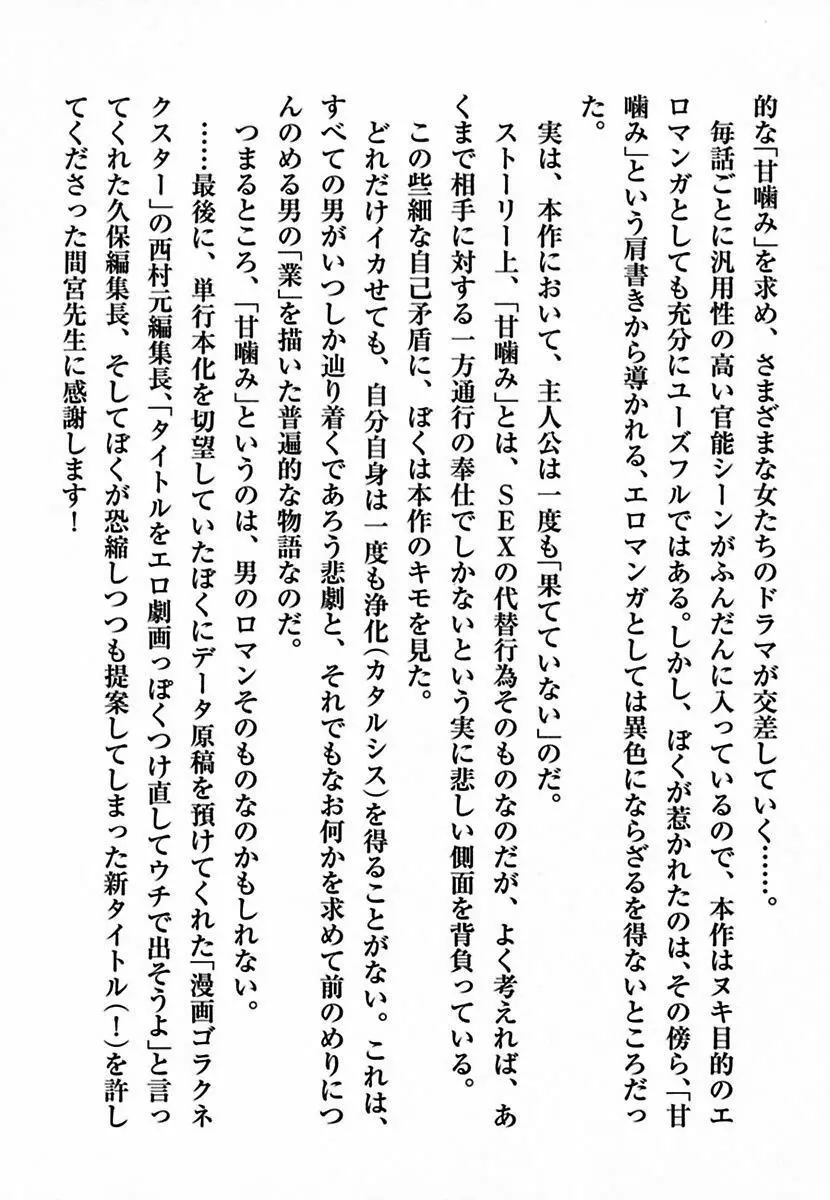 的な「甘噛み」を求め、さまざまな女たちのドラマが交差していく……。
　毎話ごとに汎用性の高い官能シーンがふんだんに入っているので、本作はヌキ目的のエ
ロマンガとしても充分にユーズフルではある。しかし、ぼくが惹かれたのは、その傍ら、「甘
噛み」という肩書きから導かれる、エロマンガとしては異色にならざるを得ないところだっ
た。
　実は、本作において、主人公は一度も「果てていない」のだ。
　ストーリー上、「甘噛み」とは、ＳＥＸの代替行為そのものなのだが、よく考えれば、あ
くまで相手に対する一方通行の奉仕でしかないという実に悲しい側面を背負っている。
　この些細な自己矛盾に、ぼくは本作のキモを見た。
　どれだけイカせても、自分自身は一度も浄化（カタルシス）を得ることがない。これは、
すべての男がいつしか辿り着くであろう悲劇と、それでもなお何かを求めて前のめりにつ
んのめる男の「業」を描いた普遍的な物語なのだ。
　つまるところ、「甘噛み」というのは、男のロマンそのものなのかもしれない。
　……最後に、単行本化を切望していたぼくにデータ原稿を預けてくれた「漫画ゴラクネ
クスター」の西村元編集長、「タイトルをエロ劇画っぽくつけ直してウチで出そうよ」と言っ
てくれた久保編集長、そしてぼくが恐縮しつつも提案してしまった新タイトル（！）を許し
てくださった間宮先生に感謝します！